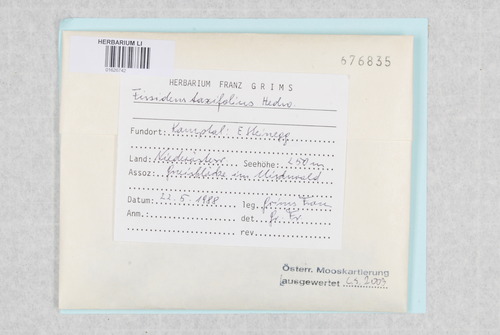 HERBARIUM LI
676835
HERBARIUM FRANZ GRIMS
Fissidens taxifolius Hedw.
Fundort: Kamptal:
Land: Niederösterr. Seehöhe: 250 m
Assoz: im Mischwald
Datum: 22.5.1988 leg. Grims Franz
Anm.: det. Gr. Fr.
rev.
Österr. Mooskartierung
ausgewertet 2009